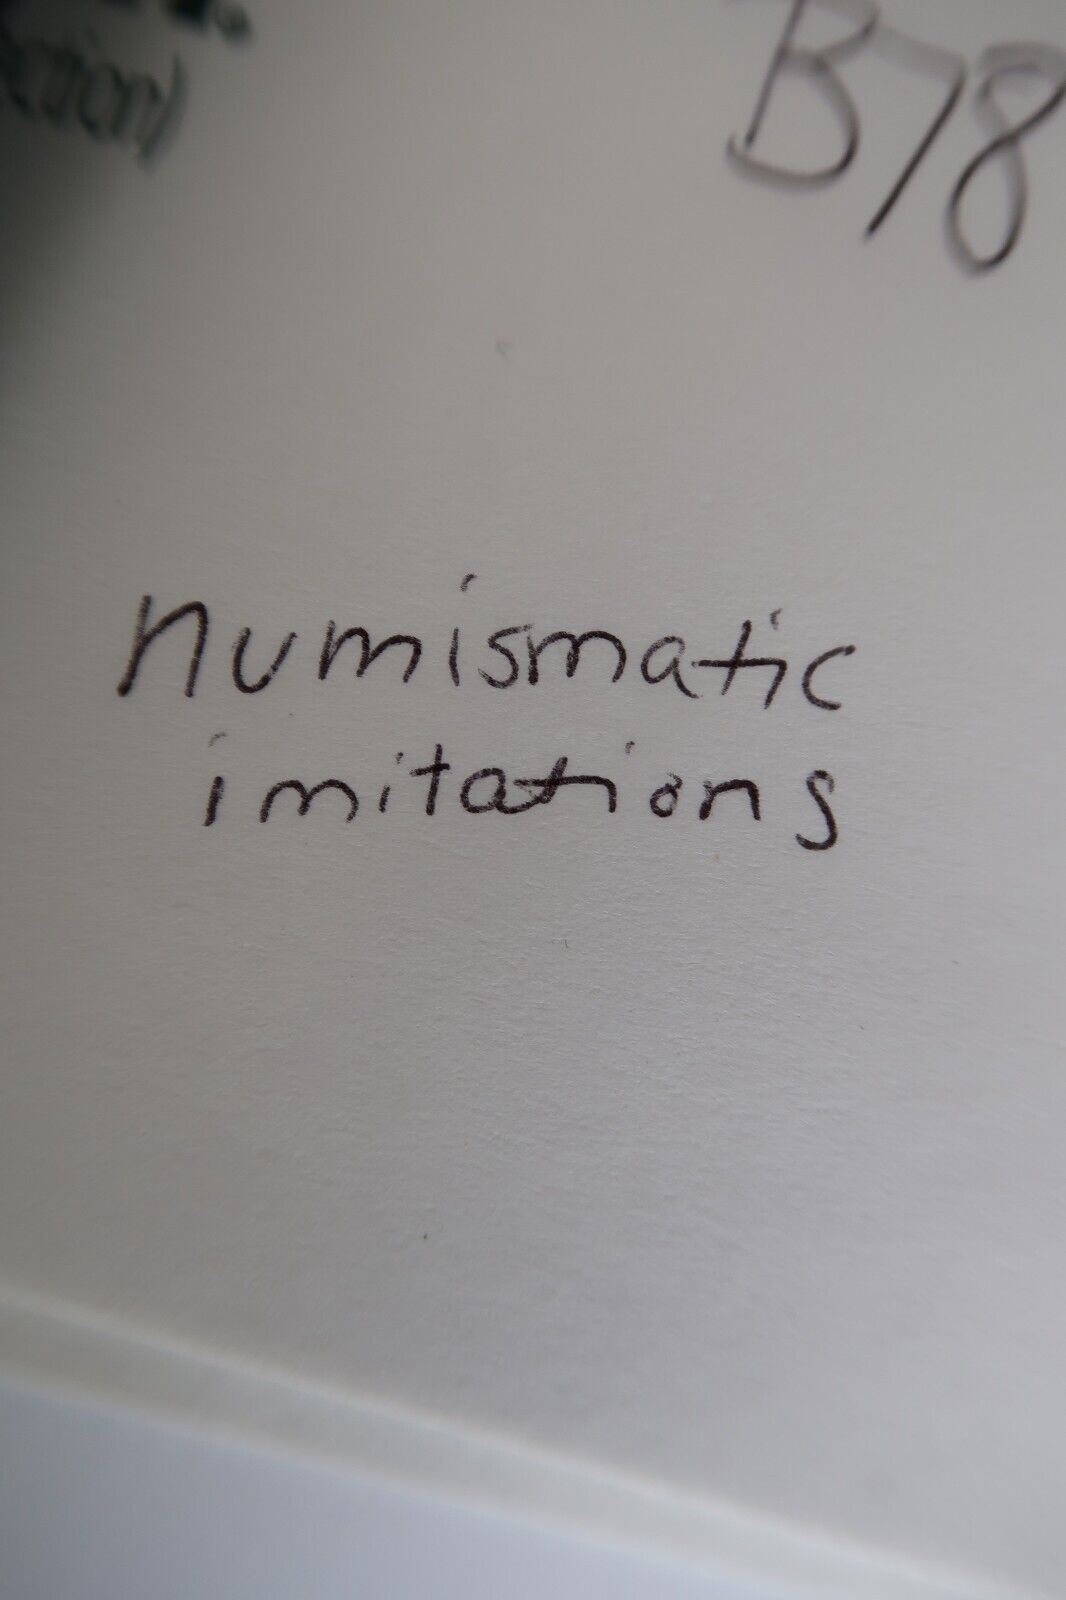 B78
numismatic
imitations